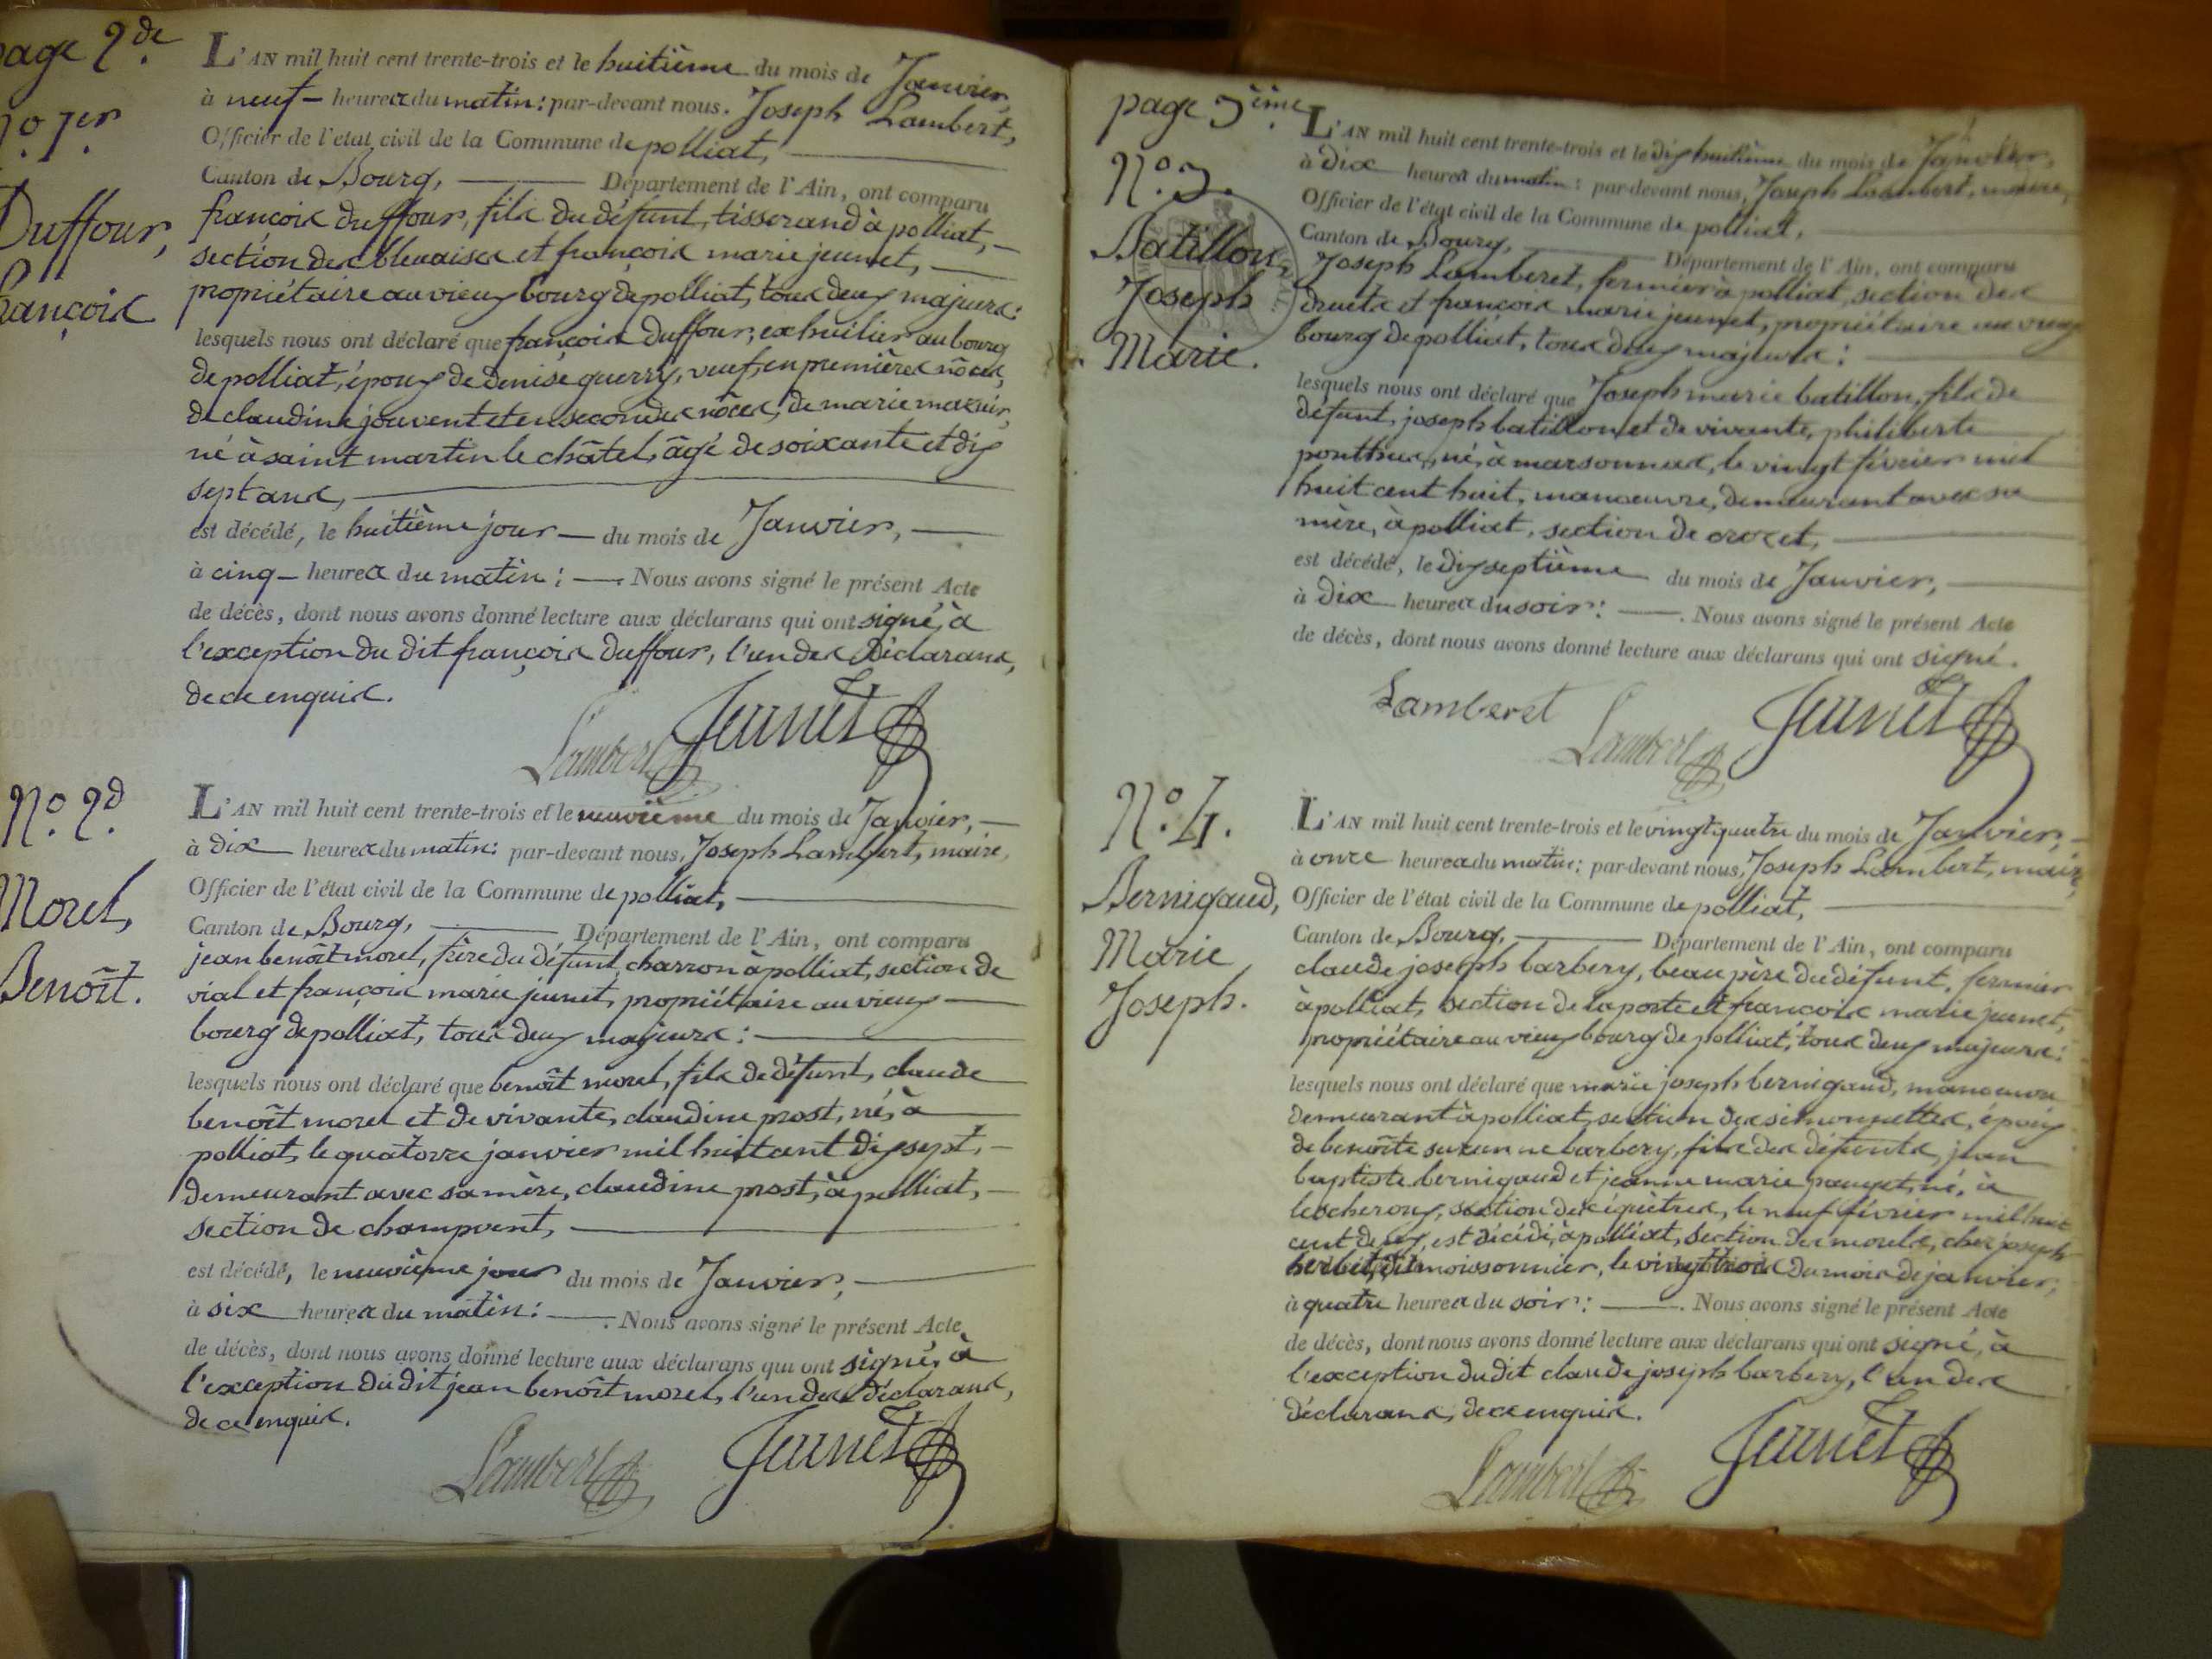 page 2de
No. 1er.
Duffour,
françois
L'AN mil huit cent trente-trois et le huitième du mois de Janvier,
à neuf heures du matin : par-devant nous. Joseph Lambert,
Officier de l'état civil de la Commune de polliat,
Canton de Bourg, Département de l'Ain, ont comparu
françois duffour, fils du défunt, tisserand à polliat,
section des et françois marie jeunet,
propriétaire au vieux bourg de polliat, tous deux majeurs :
lesquels nous ont déclaré que françois Duffour, ex huilier au bourg
de polliat, époux de denise guerry, veuf, en premières nôces,
de claudine jouvent et en secondes nôces, de marie
né à saint martin le châtel, âgé de soixante et dix
sept ans,
est décédé, le huitième jour du mois de Janvier,
à cinq heures du matin : Nous avons signé le présent Acte
de décès, dont nous avons donné lecture aux déclarans qui ont signé, à
l'exception du dit françois Duffour, l'un des Déclarans,
de ce enquis.
Lambert Jeunet
No. 2d.
Morel,
Benoît.
L'AN mil huit cent trente-trois et le neuvième du mois de Janvier,
à Dix heures du matin : par-devant nous, Joseph Lambert, maire,
Officier de l'état civil de la Commune de polliat,
Canton de Bourg, Département de l'Ain, ont comparu
jean benoît morel, frère du défunt, charron à polliat, section de
vial et françois marie jeunet, propriétaire au vieux
bourg de polliat, tous deux majeurs :
lesquels nous ont déclaré que benoît morel, fils de défunt, claude
benoît morel et de vivante, claudine prost, né, à
polliat, le quatorze janvier mil huit cent dix sept,
demeurant avec sa mère, claudine prost, à polliat,
section de champvent,
est décédé, le neuvième jour du mois de Janvier,
à six heures du matin : Nous avons signé le présent Acte
de décès, dont nous avons donné lecture aux déclarans qui ont signé, à
l'exception du dit jean benoît morel, l'un des déclarans,
de ce enquis.
Lambert Jeunet
page 3ème.
No. 3.
Batillon,
Joseph
Marie.
L'AN mil huit cent trente-trois et le dix huitième du mois de Janvier,
à Dix heures du matin : par-devant nous, Joseph Lambert, maire,
Officier de l'état civil de la Commune de polliat,
Canton de Bourg, Département de l'Ain, ont comparu
Joseph Lamberet, fermier à polliat, section des
druets et françois marie jeunet, propriétaire au vieux
bourg de polliat, tous deux majeurs :
lesquels nous ont déclaré que Joseph marie batillon, fils de
défunt, joseph batillon et de vivante, philiberte
ponthus, né, à marsonnas, le vingt février mil
huit cent huit, manoeuvre, demeurant avec sa
mère, à polliat, section de crozet,
est décédé, le dix septième du mois de Janvier,
à Dix heures du soir : Nous avons signé le présent Acte
de décès, dont nous avons donné lecture aux déclarans qui ont signé.
Lamberet Lambert Jeunet
No. 4.
Bernigaud,
Marie
Joseph.
L'AN mil huit cent trente-trois et le vingt quatre du mois de Janvier,
à onze heures du matin : par-devant nous, Joseph Lambert, maire,
Officier de l'état civil de la Commune de polliat,
Canton de Bourg, Département de l'Ain, ont comparu
claude joseph barbery, beau père du défunt, fermier
à polliat, section de laposte et françois marie jeunet,
propriétaire au vieux bourg de polliat, tous deux majeurs :
lesquels nous ont déclaré que marie joseph bernigaud, manoeuvre
demeurant à polliat, section des simonettes, époux
de benoîte suzanne barbery, fils des défunts, jean
baptiste bernigaud et jeanne marie pauget, né, à
lescheroux, section des le neuf février mil huit
cent deux, est décédé, à polliat, section des morels, chez joseph
moissonnier, le vingt trois du mois de janvier,
à quatre heures du soir : Nous avons signé le présent Acte
de décès, dont nous avons donné lecture aux déclarans qui ont signé, à
l'exception du dit claude joseph barbery, l'un des
déclarans, de ce enquis.
Lambert Jeunet